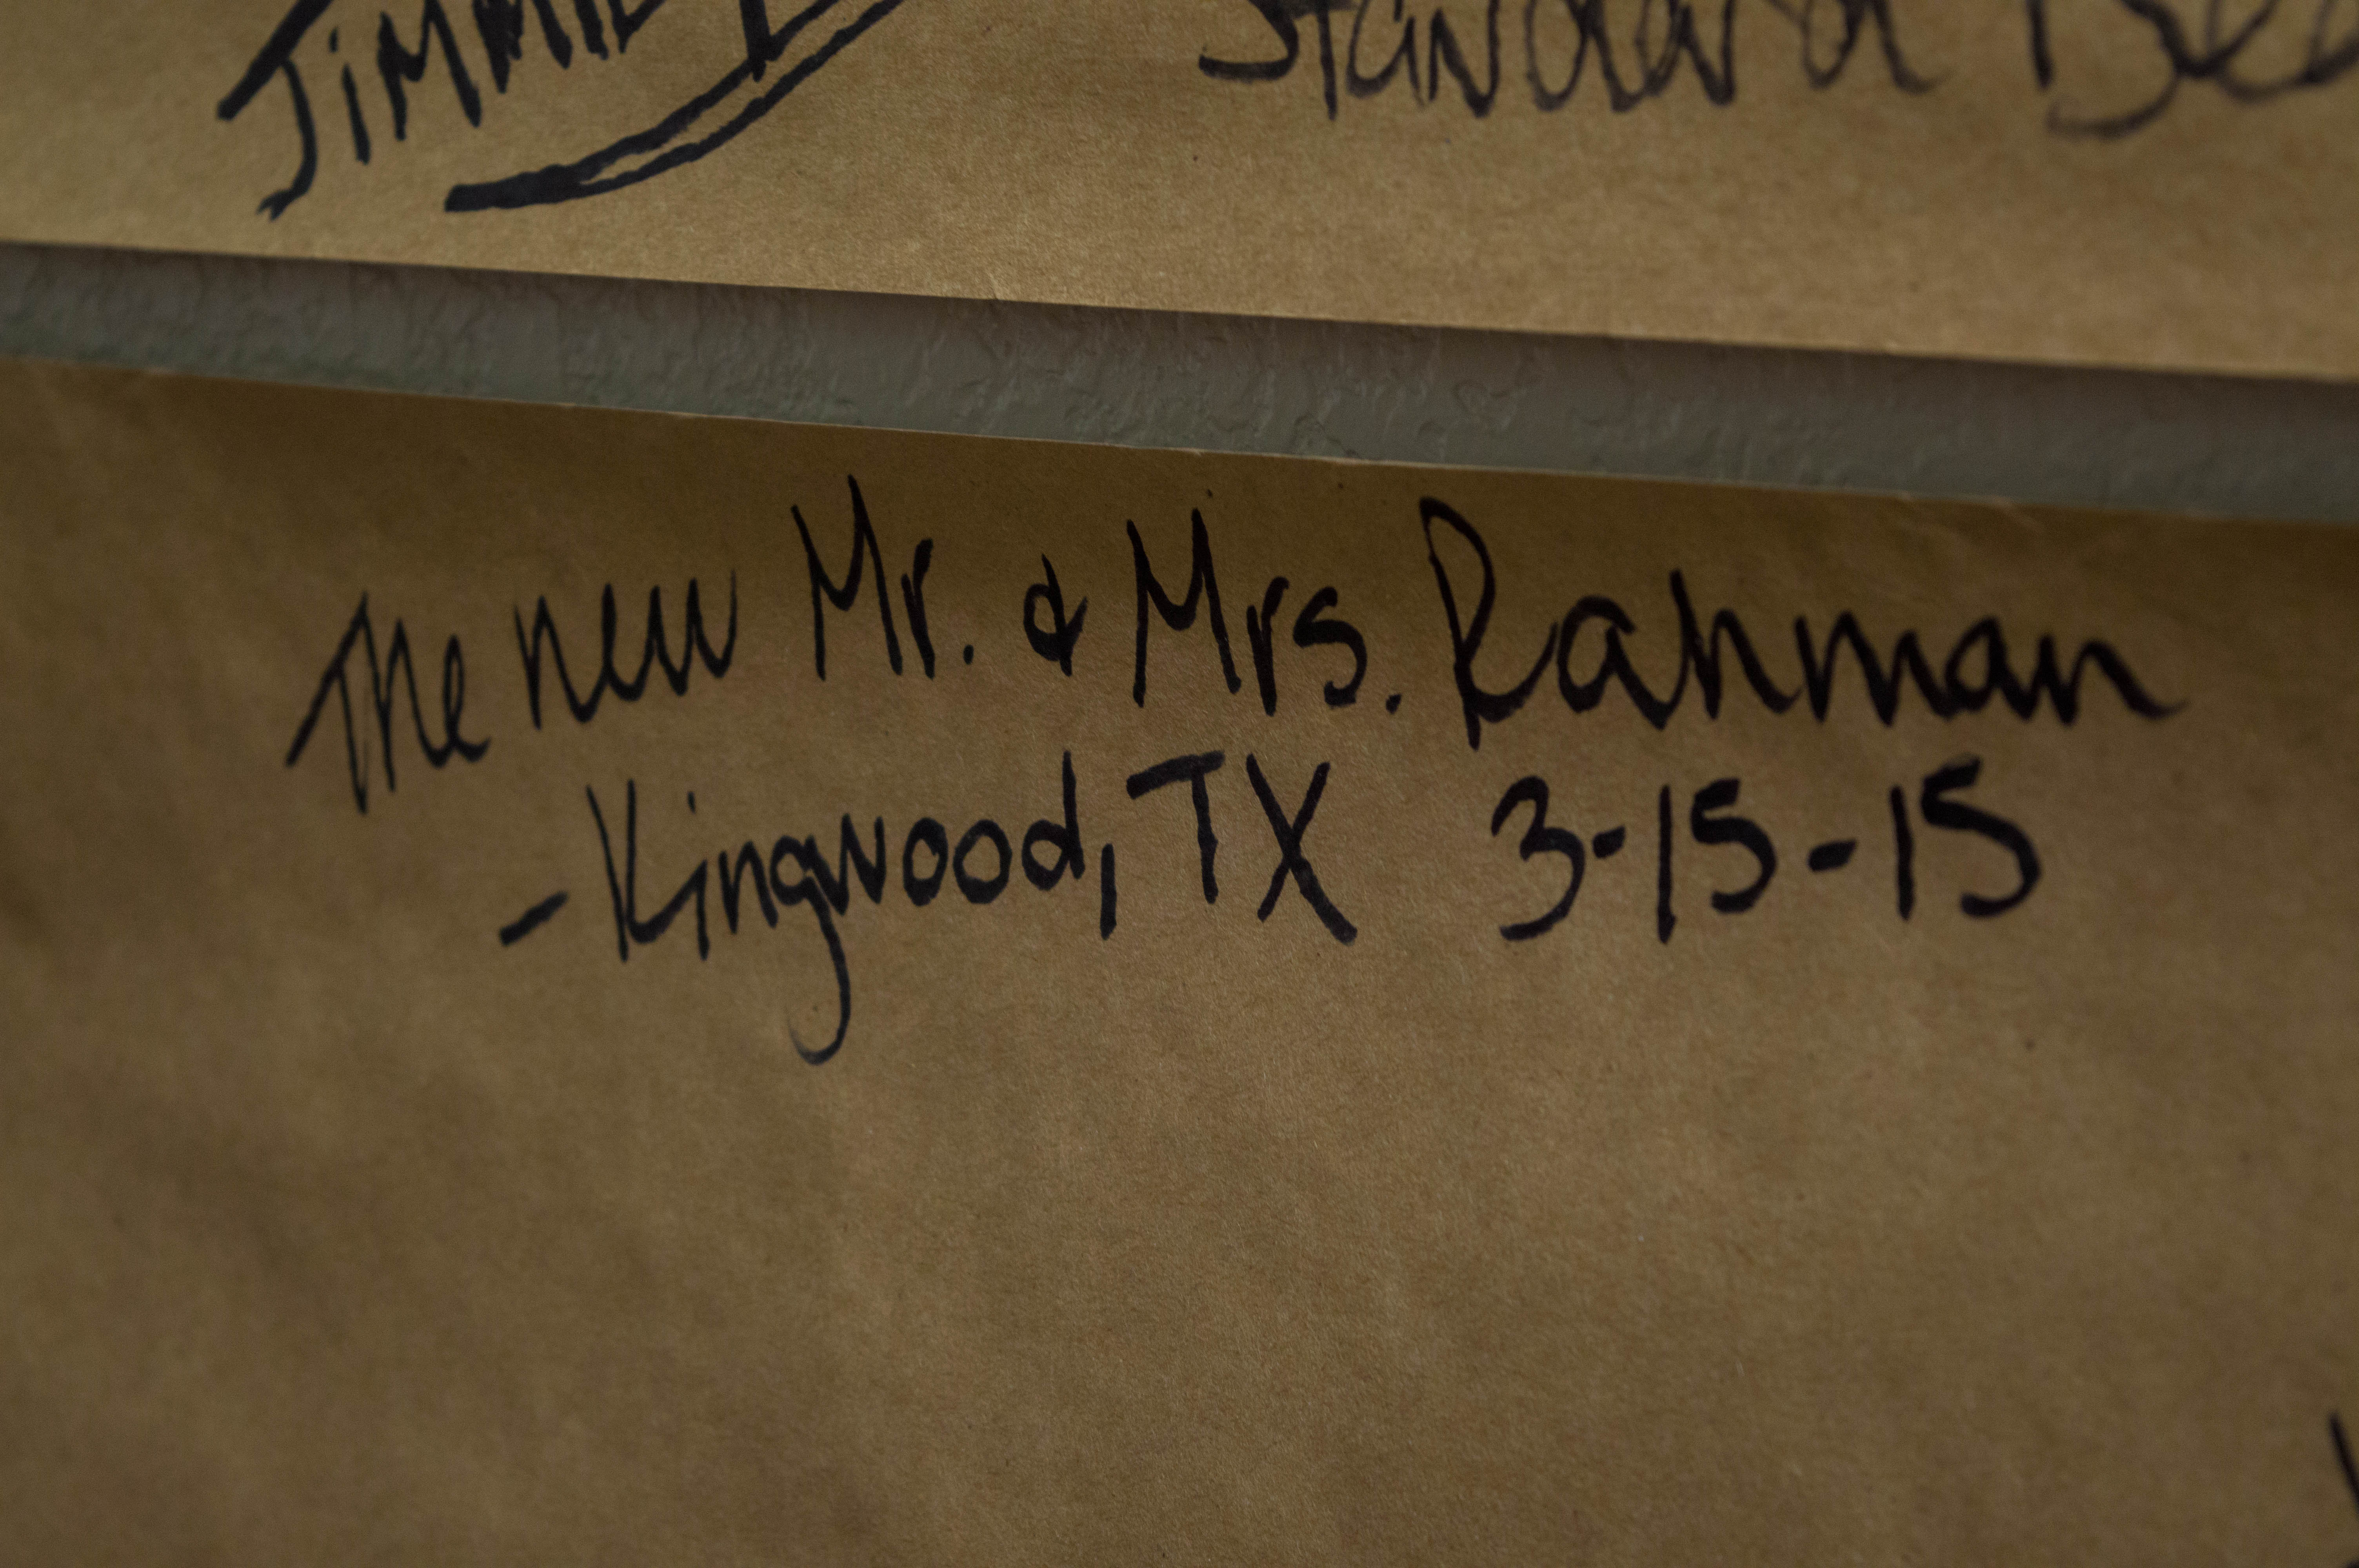 Jimmie
Standard
The new Mr. & Mrs. Rahman
- Kingwood, TX 3-15-15